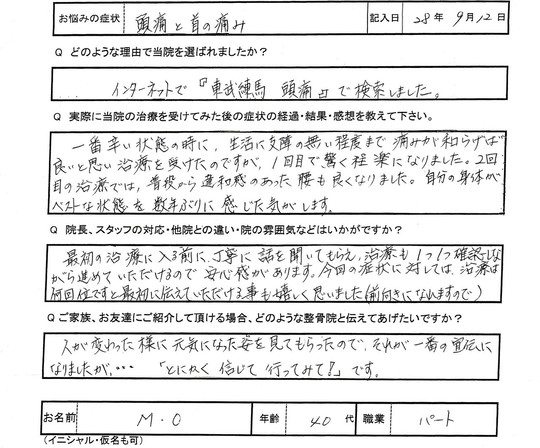 お悩みの症状 頭痛と首の痛み 記入日 28年9月12日
Q どのような理由で当院を選ばれましたか？
インターネットで『東武練馬 頭痛』で検索しました。
Q 実際に当院の治療を受けてみた後の症状の経過・結果・感想を教えて下さい。
一番辛い状態の時に、生活に支障の無い程度まで痛みが和らげば
良いと思い治療を受けたのですが、1回目で驚く程楽になりました。2回
目の治療では、普段から違和感のあった腰も良くなりました。自分の身体が
ベストな状態を数年ぶりに感じた気がします。
Q 院長、スタッフの対応・他院との違い・院の雰囲気などはいかがですか？
最初の治療に入る前に、丁寧に話を聞いてもらえ、治療も1つ1つ確認しな
がら進めていただけるので安心感があります。今回の症状に対しては、治療は
何回位ですと最初に伝えていただける事も嬉しく思いました(前向きになれますので)
Q ご家族、お友達にご紹介して頂ける場合、どのような整骨院と伝えてあげたいですか？
人が変わった様に元気になった姿を見てもらったので、それが一番の宣伝に
なりましたが、・・・「とにかく信じて行ってみて！」です。
お名前 M.O 年齢 40代 職業 パート
(イニシャル・仮名も可)